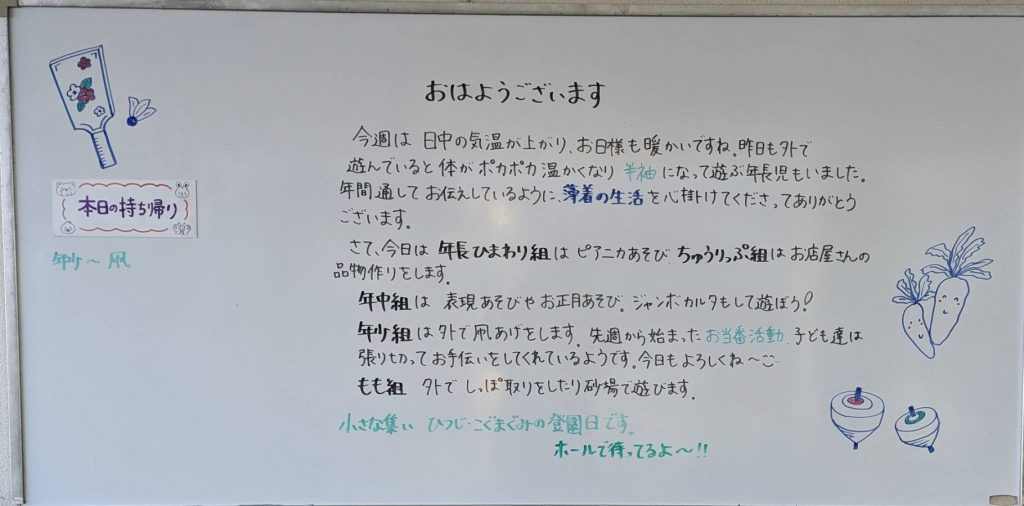 おはようございます
今週は 日中の気温が上がり、お日様も暖かいですね。昨日も外で
遊んでいると体がポカポカ温かくなり 半袖になって遊ぶ年長児もいました。
年間通してお伝えしているように、薄着の生活を心掛けてくださってありがとう
ございます。
さて、今日は 年長ひまわり組は ピアニカあそび、ちゅうりっぷ組はお店屋さんの
品物作りをします。
年中組は 表現あそびや お正月あそび。ジャンボカルタもして遊ぼう!
年少組は外で凧あげをします。先週から始まったお当番活動、子ども達は
張り切ってお手伝いをしてくれているようです。今日もよろしくね〜
もも組 外で しっぽ取りをしたり砂場で遊びます。
小さな集い ひつじ・こぐまぐみの登園日です。
ホールで待ってるよ〜!!
本日の持ち帰り
年少〜凧